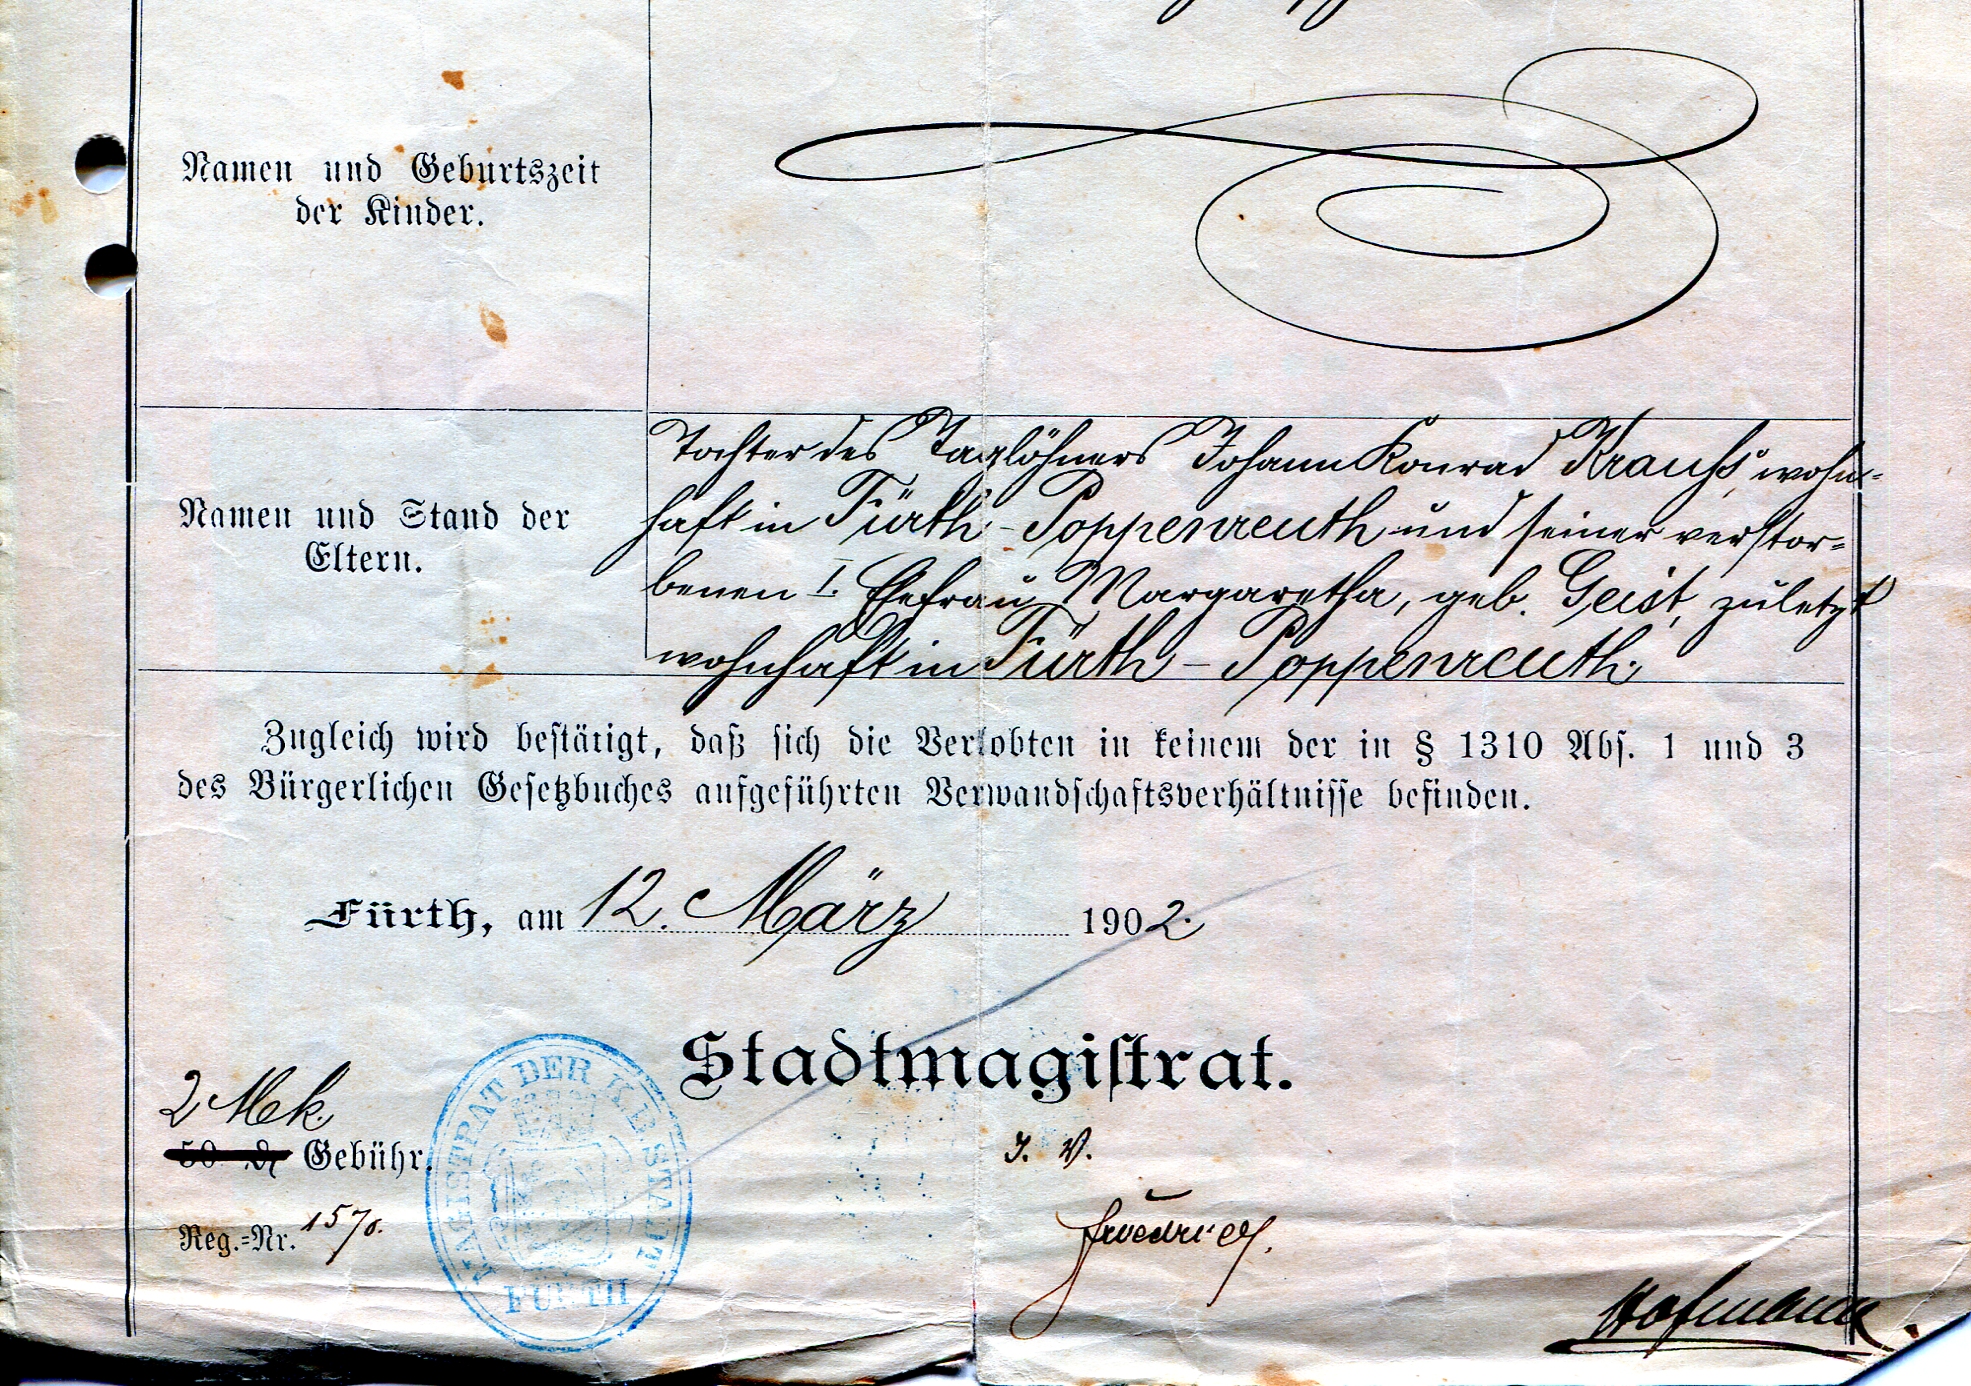 Namen und Geburtszeit
der Kinder.
Tochter des Taglöhners Johann Konrad Krauß, wohn-
haft in Fürth-Poppenreuth und seiner verstor-
benen I. Ehefrau Margaretha, geb. Geist, zuletzt
wohnhaft in Fürth-Poppenreuth.
Namen und Stand der
Eltern.
Zugleich wird bestätigt, daß sich die Verlobten in keinem der in § 1310 Abs. 1 und 3
des Bürgerlichen Gesetzbuches aufgeführten Verwandschaftsverhältnisse befinden.
Fürth, am 12. März 1902.
Stadtmagistrat.
2 Mk.
50 ₰ Gebühr.
I. V.
Reg.-Nr. 1570.
MAGISTRAT DER K. B. STADT
FÜRTH
Hofmann